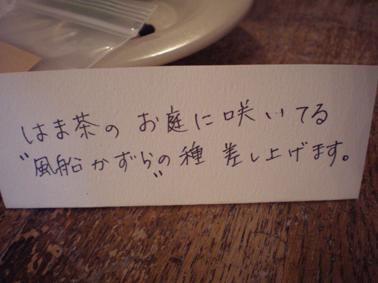 はま茶の お庭に咲いてる
"風船かずら"の種 差し上げます。